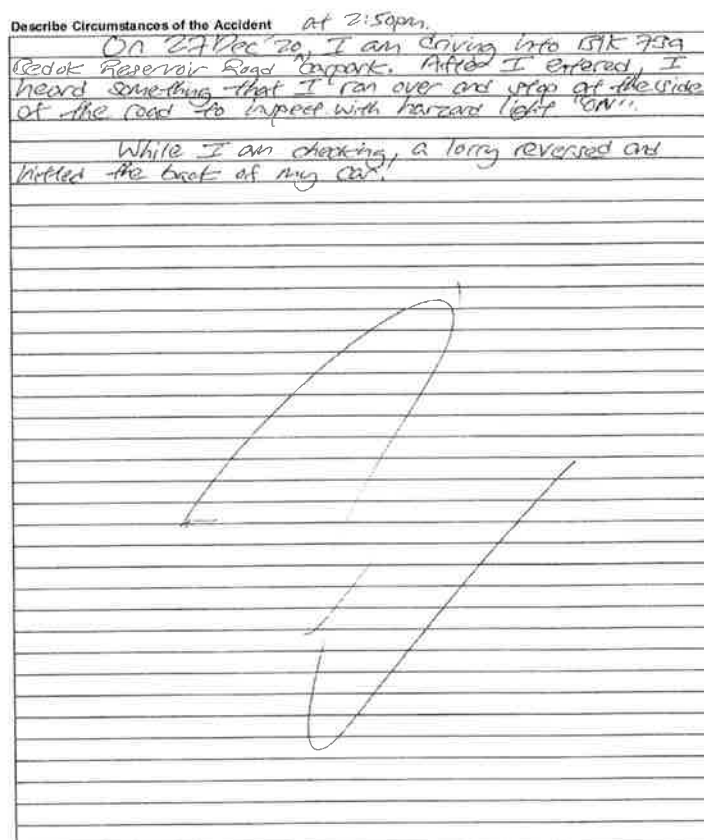 Describe Circumstances of the Accident at 2:50pm.
On 27 Dec '20, I am driving into Blk 739
Bedok Reservoir Road carpark. After I entered, I
heard something that I ran over and stop at the side
of the road to inspect with harzard light "ON".
While I am checking, a lorry reversed and
hitted the back of my car.